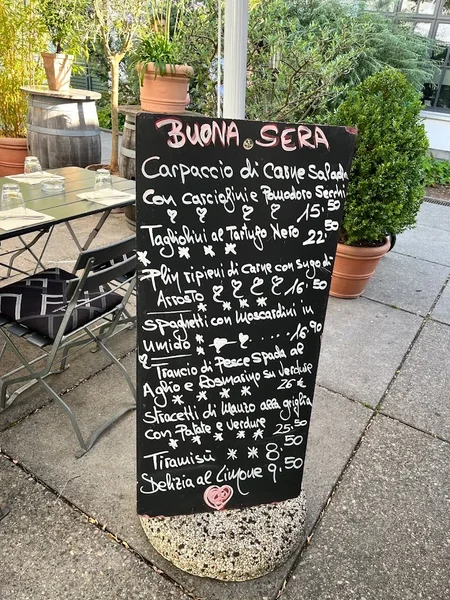 BUONA SERA
Carpaccio di Carne Salada
con carciofini e Pomodoro Secchi
15,50
Tagliolini al Tartufo Nero 22,50
Plin ripieni di carne con sugo di
Arrosto 16,50
Spaghetti con Moscardini in
umido 16,90
Trancio di Pesce Spada al
Aglio e Rosmarino su verdure
26 €
Straccetti di Manzo alla griglia
con Patate e verdure 25,50
Tiramisù 8,50
Delizia al Limone 9,50